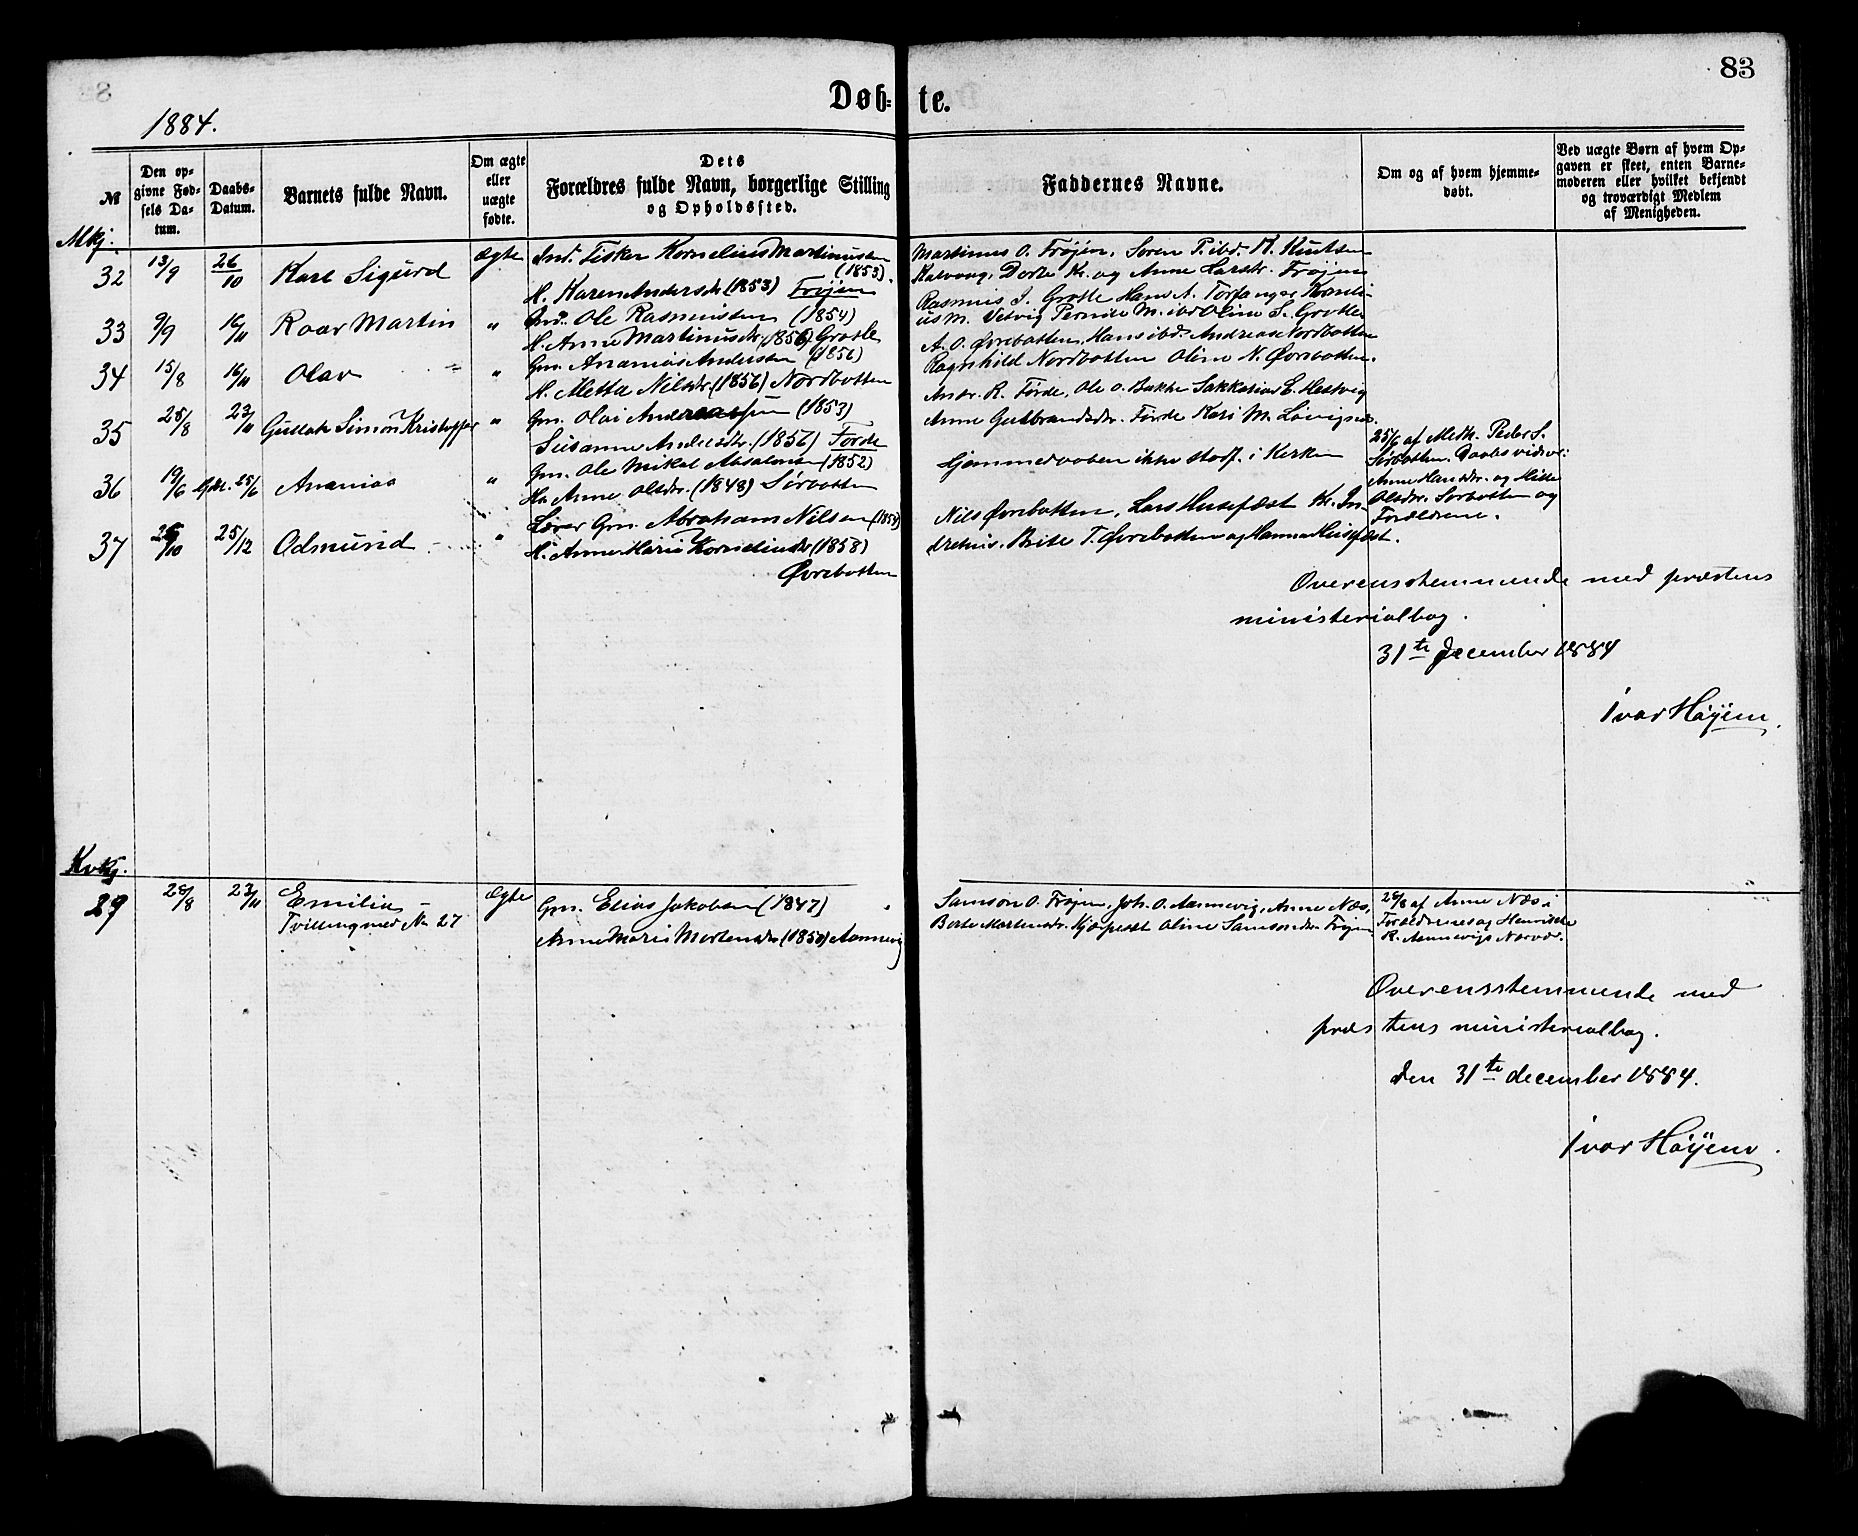 83
Døb=te.
1884.
№
Den op=
givne Fød=
sels Da=
tum.
Daabs=
Datum.
Barnets fulde Navn.
Om ægte
eller
uægte
fødte.
Dets
Forældres fulde Navn, borgerlige Stilling
og Opholdssted.
Faddernes Navne.
Om og af hvem hjemme=
døbt.
Ved uægte Børn af hvem Op=
gaven er skeet, enten Barne=
moderen eller hvilket bekjendt
og troværdigt Medlem
af Menigheden.
Mkj.
32 13/9 26/10 Karl Sigurd ægte Ind. Fisker Kornelius Martinussen
(1853)
H. Karen Andersdr (1853) Frøjen
Martinus O. Frøjen, Søren P. ibd. M. Knutsen
Kalvaag, Dorte Kr. og Anne Larsdr. Frøjen
33 9/9 16/11 Roar Martin " Ind. Ole Rasmussen (1854)
H. Anne Martinusdr. (1856) Grotle
Rasmus J. Grotle Hans A. Torfanger Korneli-
us M. Vetvig Pernille M. ibd Oline S. Grotle
34 15/8 16/11 Olav " Gm. Ananias Andersen (1856)
H. Metta Nilsdr (1856) Nordbotten
A. O. Øvrebotten, Hans ibd. Andreas Nordbotten
Ragnhild Nordbotten Oline N. Øvrebotten.
35 28/8 23/11 Gullak Simon Kristoffer " Gm. Olai Andreassen (1853)
Susanne Andersdtr. (1856) Førde
Andr. R. Førde, Ole O. Bakke Sakkarias E. Hestvig
Anne Gulbrandsdr. Førde Kari M. Løvignes.
36 19/6 25/6 Ananias " Gm. Ole Mikal Absalonsen (1852)
H. Anne Olsdr. (1848) Sørbotten
Hjemmedaaben ikke stadf. i Kirken
25/6 af Meth. Peder S.
Sørbotten. Daabsvidner:
Anne Hansdr. og Mille
Olsdr. Sørbotten og
Forældrene.
37 26/10 25/12 Odmund " Lærer Gm. Abraham Nilsen
H. Anne Marie Kornelius dr (1858)
Øvrebotten
Nils Øvrebotten, Lars Husefæst Kr. In-
drehus. Brite T. Øvrebotten og Hanna Husefæst.
Overensstemmende med præstens
ministerialbog.
31te december 1884
Ivar Høyem.
Kvkj.
29 28/8 23/11 Emilie ægte Gm. Elias Jakobsen (1847)
Tvilling med No 27
Anne Marie Mortensdr (1850) Aannevig
Samson O. Frøjen, Joh. O. Aannevig, Anne Næs,
Berte Mortensdr. Kjæpeset Oline Samsonsdr. Frøjen
28/8 af Anne Næs i
Forældrenes og Henrikke
R. Aannevigs Nærvær.
Overensstemmende med
præstens ministerialbog.
den 31te december 1884.
Ivar Høyem.